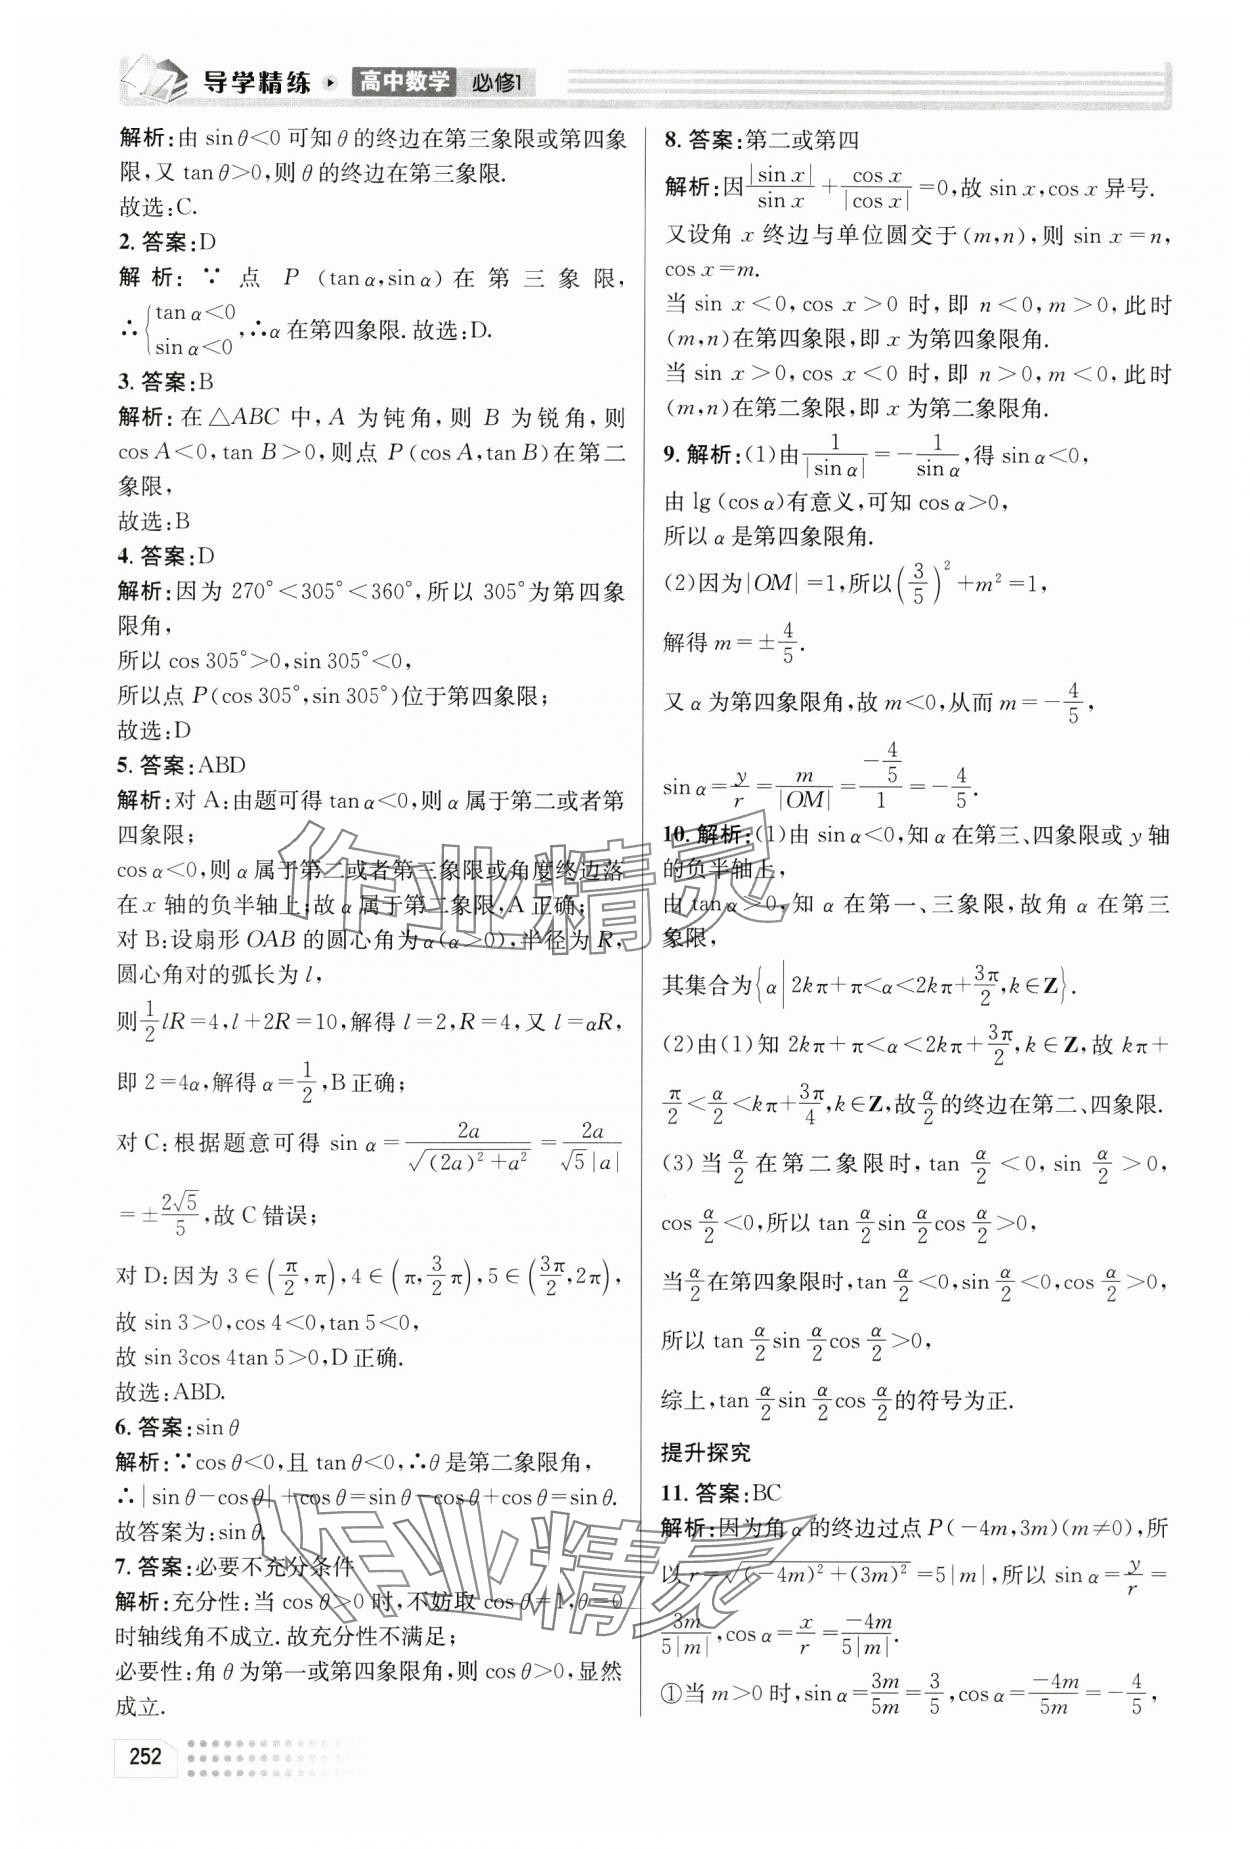 导学精练 高中数学 必修1
解析:由 sinθ<0 可知θ的终边在第三象限或第四象
限,又 tanθ>0,则θ的终边在第三象限.
故选:C.
2. 答案:D
解析:∵点 P (tanα,sinα)在第三象限,
∴{tanα<0 sinα<0,∴α在第四象限.故选:D.
3. 答案:B
解析:在△ABC 中,A 为钝角,则 B 为锐角,则
cosA<0,tanB>0,则点 P(cosA,tanB)在第二
象限,
故选:B
4. 答案:D
解析:因为 270°<305°<360°,所以 305°为第四象
限角,
所以 cos305°>0,sin305°<0,
所以点 P(cos305°,sin305°)位于第四象限;
故选:D
5. 答案:ABD
解析:对 A:由题可得 tanα<0,则α属于第二或者第
四象限;
cosα<0,则α属于第二或者第三象限或角度终边落
在 x 轴的负半轴上;故α属于第二象限,A 正确;
对 B:设扇形 OAB 的圆心角为α(α>0),半径为 R,
圆心角对的弧长为 l,
则1/2lR=4,l+2R=10,解得 l=2,R=4,又 l=αR,
即 2=4α,解得α=1/2,B 正确;
对 C:根据题意可得 sinα=2a/√((2a)²+a²)=2a/(√5|a|)
=±2√5/5,故 C 错误;
对 D:因为 3∈(π/2,π),4∈(π,3/2π),5∈(3π/2,2π),
故 sin3>0,cos4<0,tan5<0,
故 sin3cos4tan5>0,D 正确.
故选:ABD.
6. 答案:sinθ
解析:∵cosθ<0,且 tanθ<0,∴θ是第二象限角,
∴|sinθ-cosθ|+cosθ=sinθ-cosθ+cosθ=sinθ.
故答案为:sinθ.
7. 答案:必要不充分条件
解析:充分性:当 cosθ>0 时,不妨取 cosθ=1,θ=0
时轴线角不成立.故充分性不满足;
必要性:角θ为第一或第四象限角,则 cosθ>0,显然
成立.
252
8. 答案:第二或第四
解析:因|sin x|/sin x+cos x/|cos x|=0,故 sin x,cos x 异号.
又设角 x 终边与单位圆交于(m,n),则 sin x=n,
cos x=m.
当 sin x<0,cos x>0 时,即 n<0,m>0,此时
(m,n)在第四象限,即 x 为第四象限角.
当 sin x>0,cos x<0 时,即 n>0,m<0,此时
(m,n)在第二象限,即 x 为第二象限角.
9. 解析:(1)由1/|sinα|=-1/sinα,得 sinα<0,
由 lg(cosα)有意义,可知 cosα>0,
所以α是第四象限角.
(2)因为|OM|=1,所以(3/5)²+m²=1,
解得 m=±4/5.
又α为第四象限角,故 m<0,从而 m=-4/5,
sinα=y/r=m/|OM|=(-4/5)/1=-4/5.
10. 解析:(1)由 sinα<0,知α在第三、四象限或 y 轴
的负半轴上,
由 tanα>0,知α在第一、三象限,故角α在第三
象限,
其集合为{α|2kπ+π<α<2kπ+3π/2,k∈Z}.
(2)由(1)知 2kπ+π<α<2kπ+3π/2,k∈Z,故 kπ+
π/2<α/2<kπ+3π/4,k∈Z,故α/2的终边在第二、四象限.
(3)当α/2在第二象限时,tan α/2<0,sin α/2>0,
cos α/2<0,所以 tan α/2 sin α/2 cos α/2>0,
当α/2在第四象限时,tan α/2<0,sin α/2<0,cos α/2>0,
所以 tan α/2 sin α/2 cos α/2>0,
综上,tan α/2 sin α/2 cos α/2的符号为正.
提升探究
11. 答案:BC
解析:因为角α的终边过点 P(-4m,3m)(m≠0),所
以 r=√((-4m)²+(3m)²)=5|m|,所以 sinα=y/r=
3m/5|m|,cosα=x/r=-4m/5|m|.
①当 m>0 时,sinα=3m/5m=3/5,cosα=-4m/5m=-4/5,
作业精灵
作业精灵